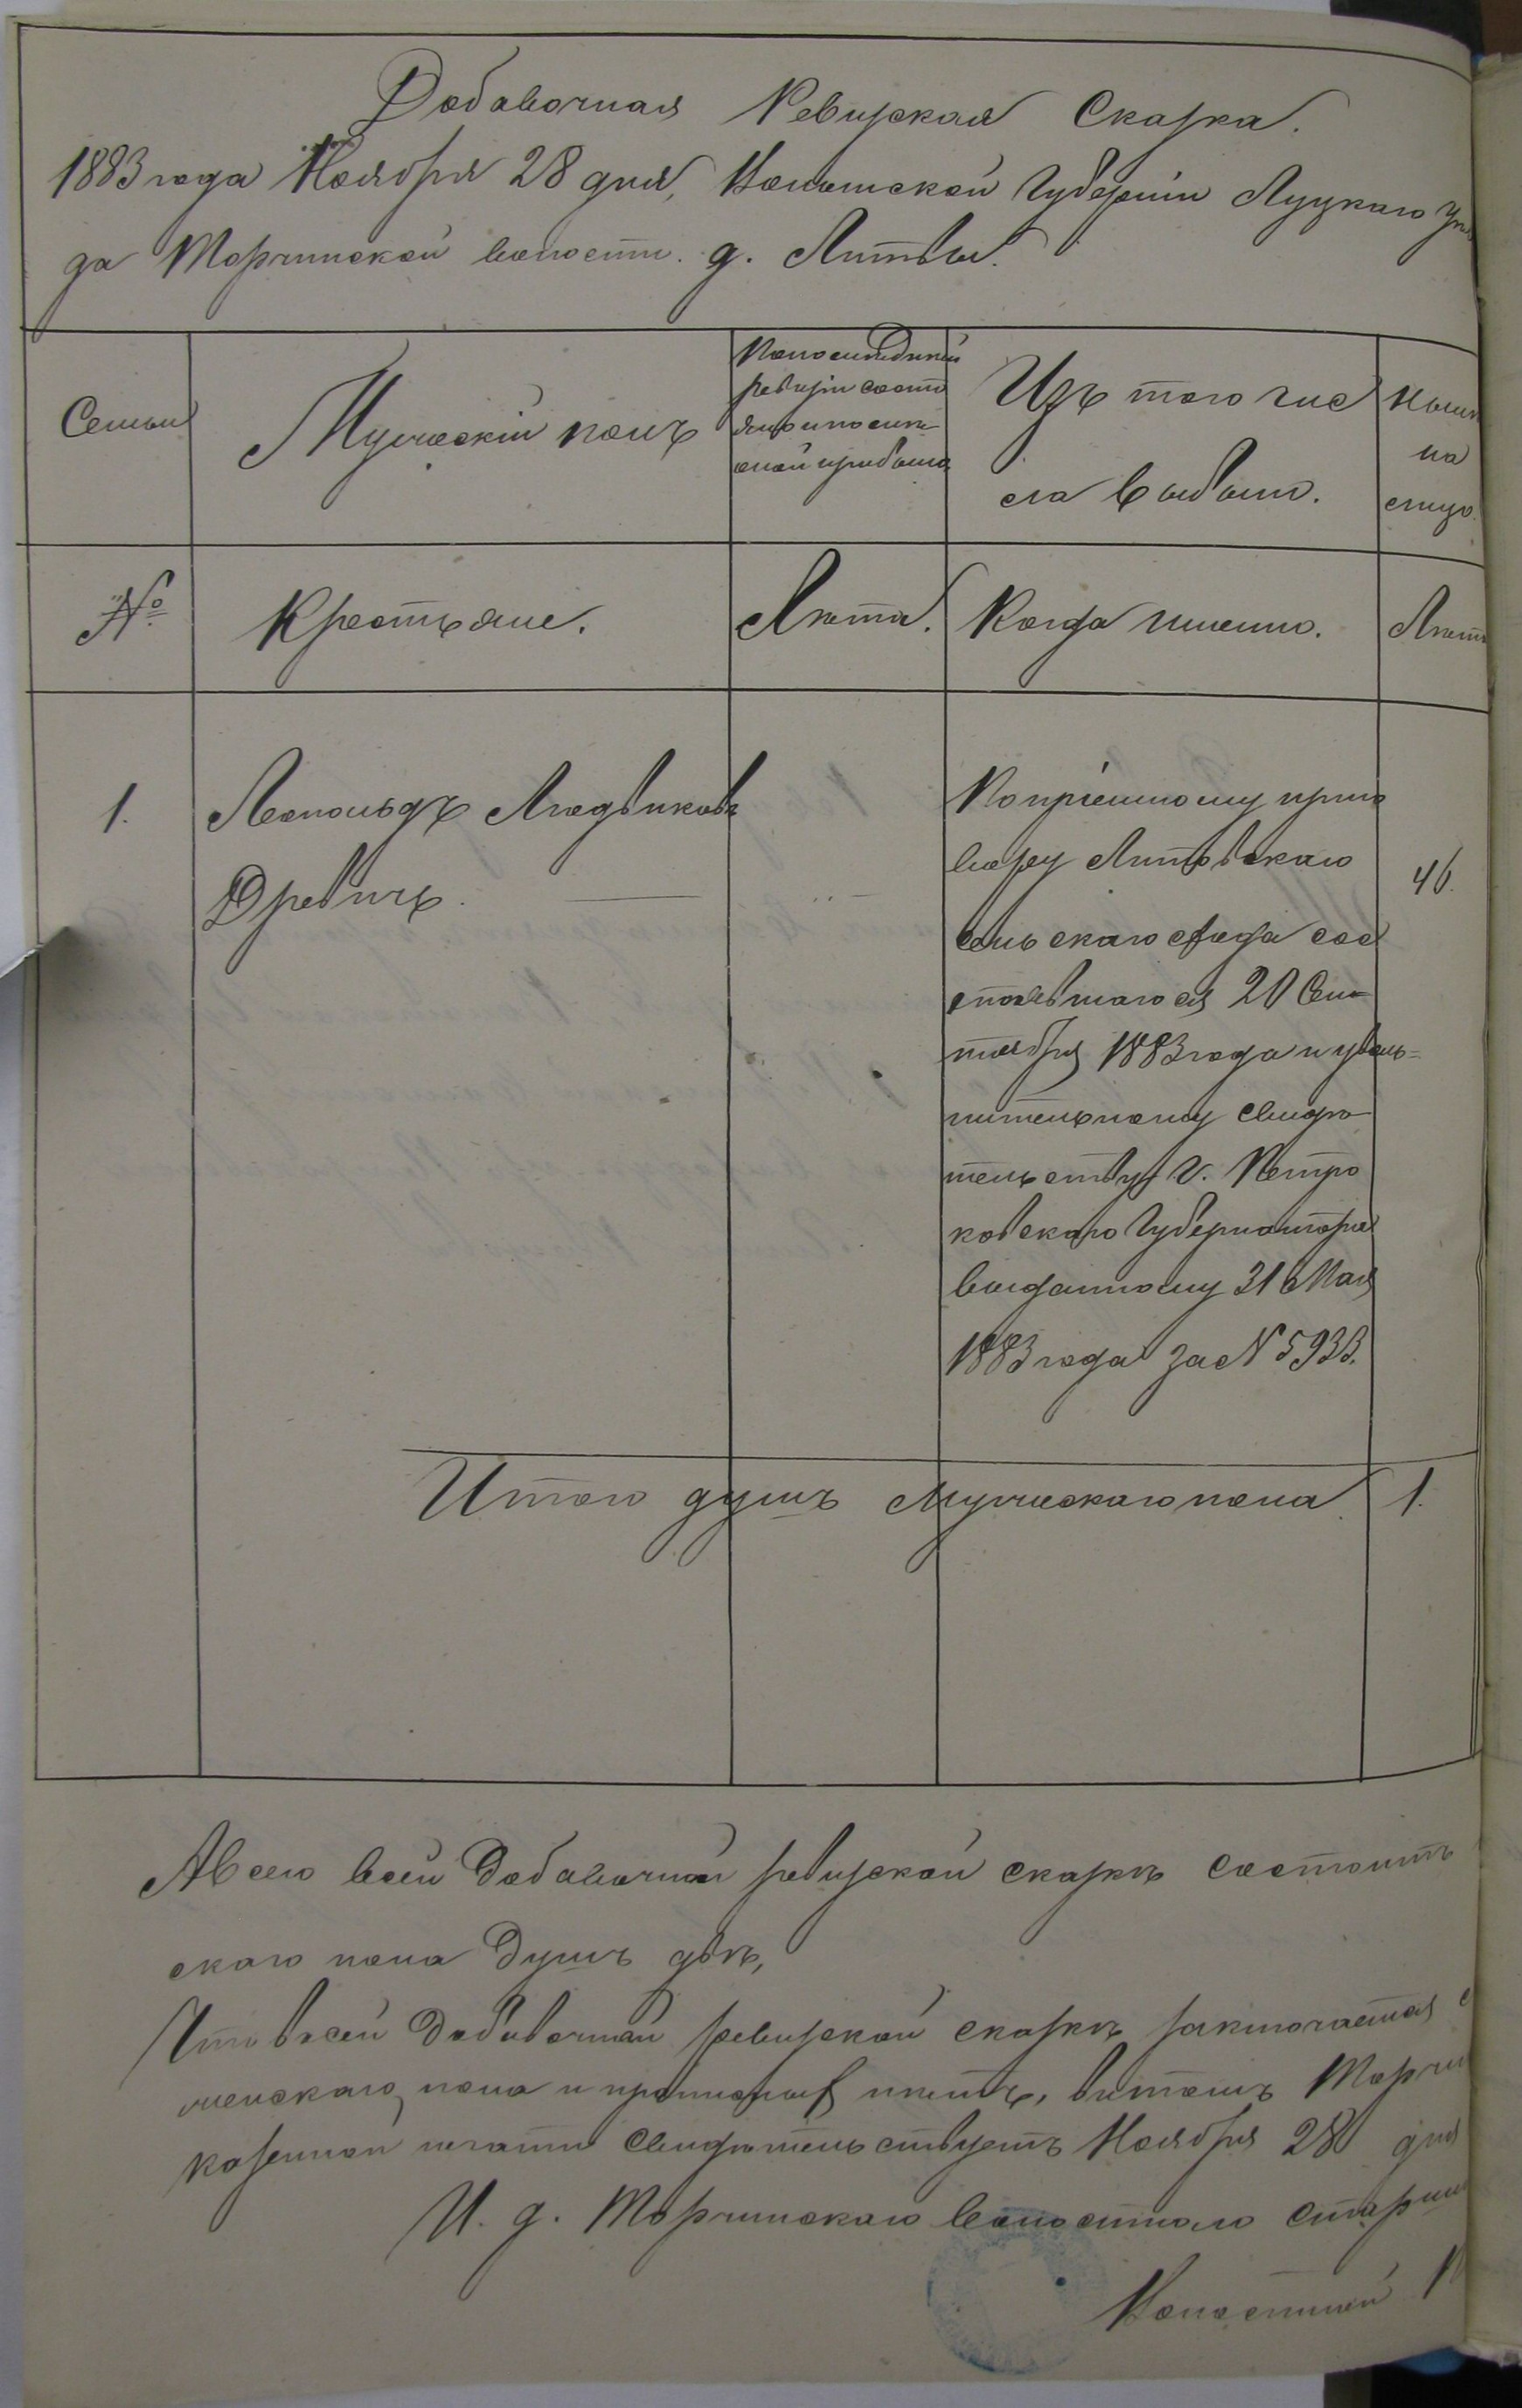 Добавочная Ревизская Сказка.
1883 года Ноября 28 дня, Волынской Губерніи Луцкаго Уѣз
да Торчинской волости. д. Литвы.
Семьи
Мужескій полъ
По послѣдней
ревизіи состо
яло и послѣ
оной прибыло
Изъ того чис
ла выбыло.
Нынѣ
на
лицо.
№
Крестьяне.
Лѣта.
Когда именно.
Лѣта
1.
Леопольдъ Людвиковъ
Древичъ.
По пріемному приго
вору Литовскаго
сельскаго схода сос
тоявшагося 20 Сен
тября 1883 года и уволь=
нительному свидѣ
тельству Г. Петро
ковскаго Губернатора
выданному 31 Мая
1883 года за № 5933.
46.
Итого душъ мужескаго пола
1.
А всего в сей Добавочной ревизской сказкѣ состоитъ
скаго пола Душъ двѣ,
Что в сей Добавочной ревизской сказкѣ заключается
женскаго пола и прописныхъ нѣтъ, в томъ Торчин
казенной печати свидѣтельствуетъ Ноября 28 дня
И. д. Торчинскаго Волостнаго старши
Волостной